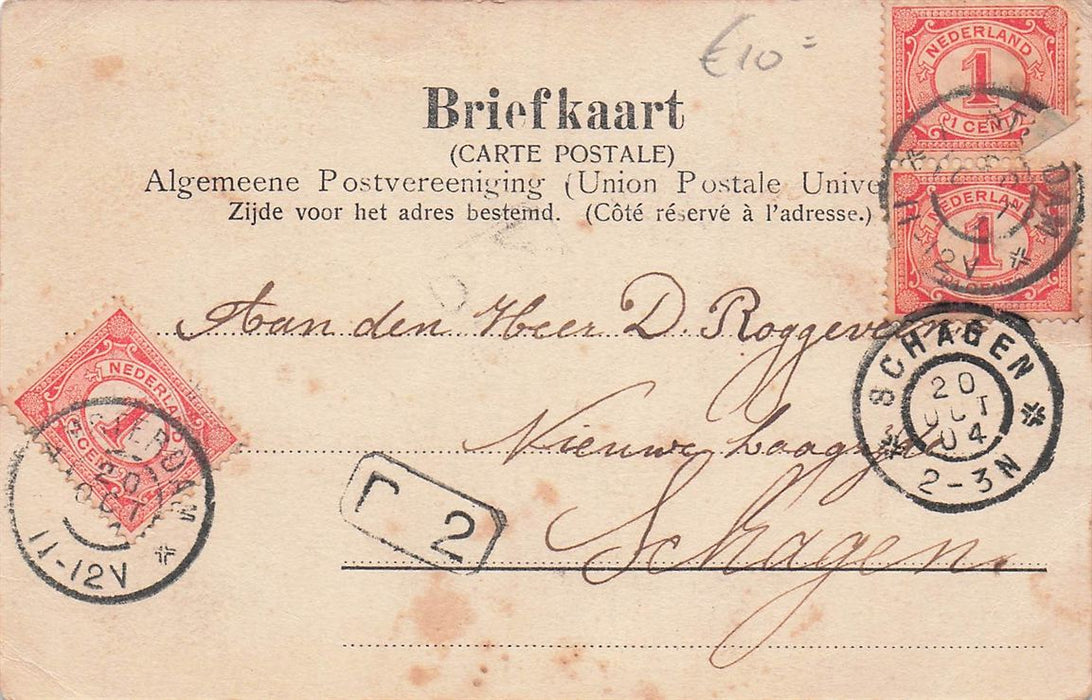 €10=
NEDERLAND
1
1 CENT
NEDERLAND
1
Briefkaart
(CARTE POSTALE)
Algemeene Postvereeniging (Union Postale Unive
Zijde voor het adres bestemd. (Côté réservé à l'adresse.)
DAM
11-12V
Aan den Heer D. Roggeveen
SCHAGEN
20
OCT
04
2-3N
NEDERLAND
1
CENT
20
OCT
11-12V
Nieuwe Laagzij
Γ 2
Schagen.